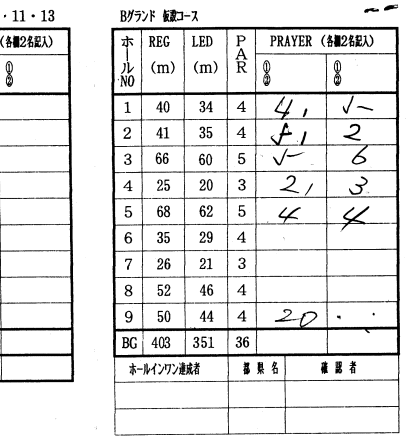 ・11・13
Bグランド 仮設コース
(各欄2名記入)
① ②
ホールNO REG (m) LED (m) PAR PRAYER (各欄2名記入)
① ② ① ②
1 40 34 4 4,
2 41 35 4 2
3 66 60 5 6
4 25 20 3 2, 3
5 68 62 5 4 4
6 35 29 4
7 26 21 3
8 52 46 4
9 50 44 4 20
BG 403 351 36
ホールインワン達成者 都県名 確認者